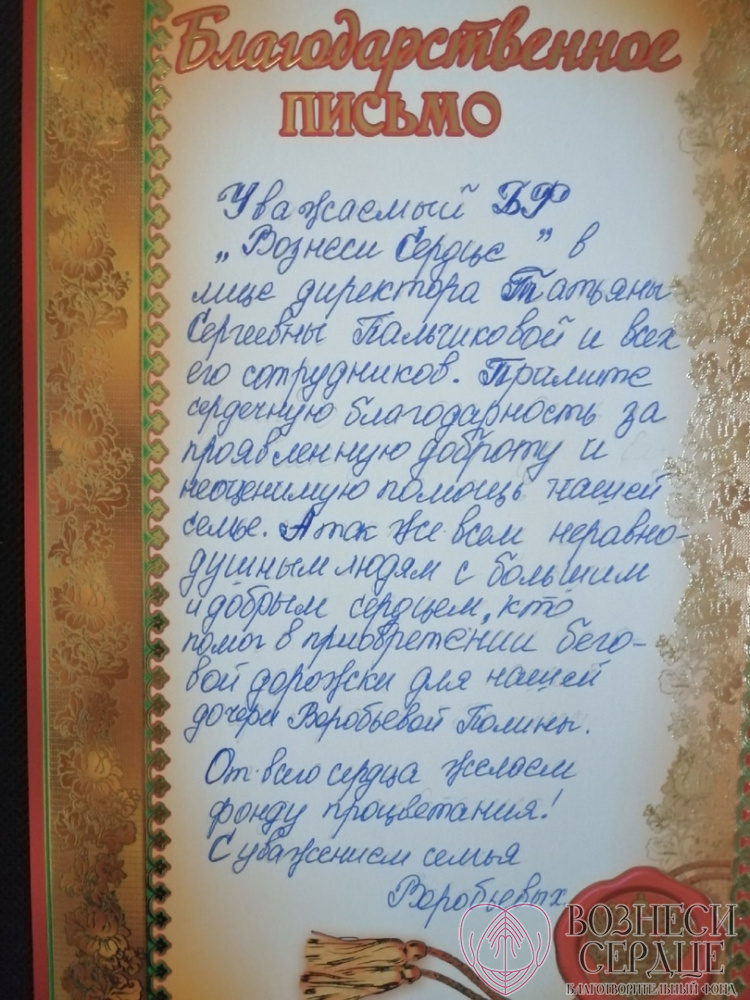 Благодарственное
письмо
Уважаемый БФ
„Вознеси Сердце” в
лице директора Татьяны
Сергеевны Пальчиковой и всех
его сотрудников. Примите
сердечную благодарность за
проявленную доброту и
неоценимую помощь нашей
семье. А так же всем неравно-
душным людям с большим
и добрым сердцем, кто
помог в приобретении бего-
вой дорожки для нашей
дочери Воробьевой Полины.
От всего сердца желаем
фонду процветания!
С уважением семья
Воробьевых.
ВОЗНЕСИ
СЕРДЦЕ
БЛАГОТВОРИТЕЛЬНЫЙ ФОНД